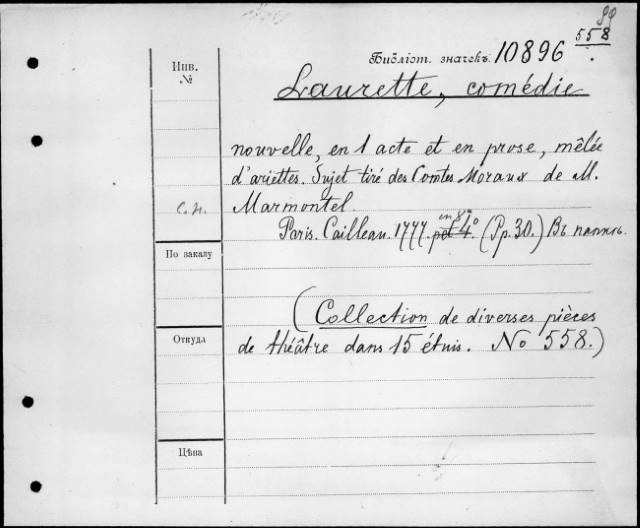 99
558
Библіот. значекъ. 10896
Инв.
№
Laurette, comédie
nouvelle, en 1 acte et en prose, mêlée
d'ariettes. Sujet tiré des Contes Moraux de M.
С.Н. Marmontel.
in 8º
Paris. Cailleau. 1777. pet 4º. (Pp. 30.) Въ папкѣ.
По заказу
(Collection de diverses pièces
Откуда
de théâtre dans 15 étuis. No 558.)
Цѣна